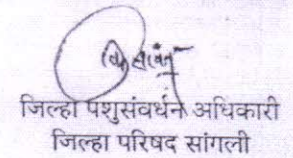 जिल्हा पशुसंवर्धन अधिकारी
जिल्हा परिषद सांगली